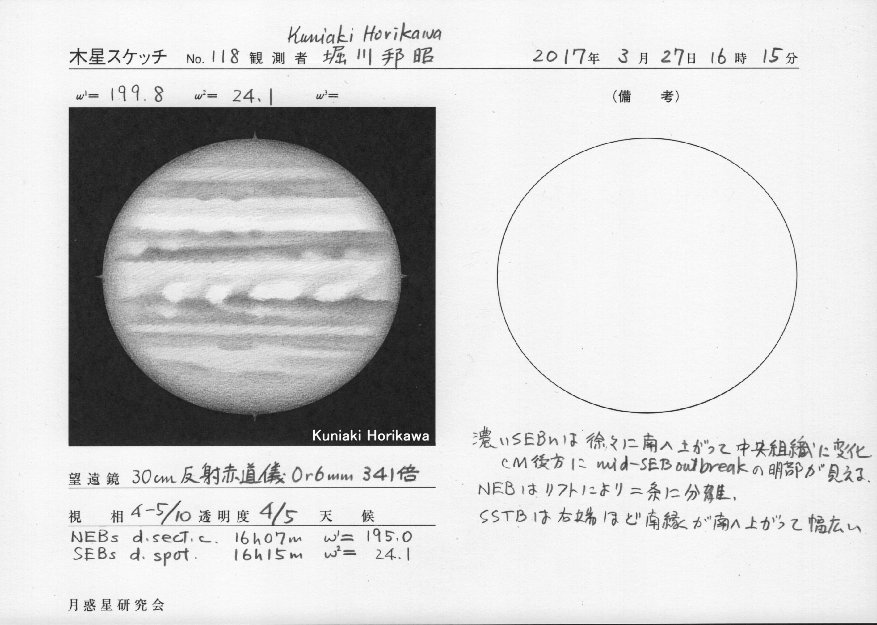 Kuniaki Horikawa
木星スケッチ No. 118 観測者 堀川邦昭 2017年 3月 27日 16時 15分
ω¹= 199.8 ω²= 24.1 ω³=
(備 考)
Kuniaki Horikawa
濃いSEBnは徐々に南へ上がって中央組織に変化
CM後方に mid-SEB outbreakの明部が見える.
NEBはリフトにより二条に分離.
SSTBは右端ほど南縁が南へ上がって幅広い
望遠鏡 30cm反射赤道儀 Or6mm 341倍
視 相 4-5/10 透明度 4/5 天 候
NEBs d.sect.c. 16h07m ω¹= 195.0
SEBs d. spot. 16h15m ω²= 24.1
月惑星研究会